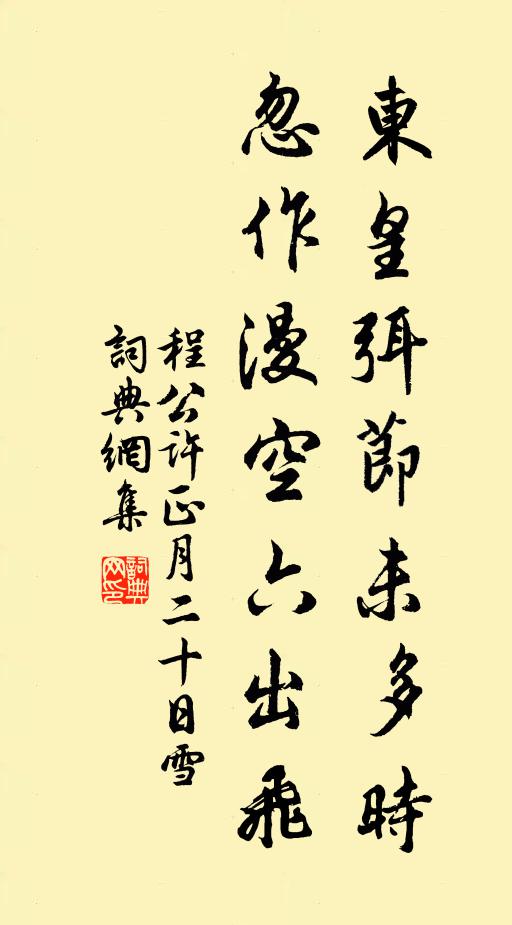 東皇弭節未多時
忽作漫空六出飛
程公許正月二十日雪
詞典網集
詞典网印